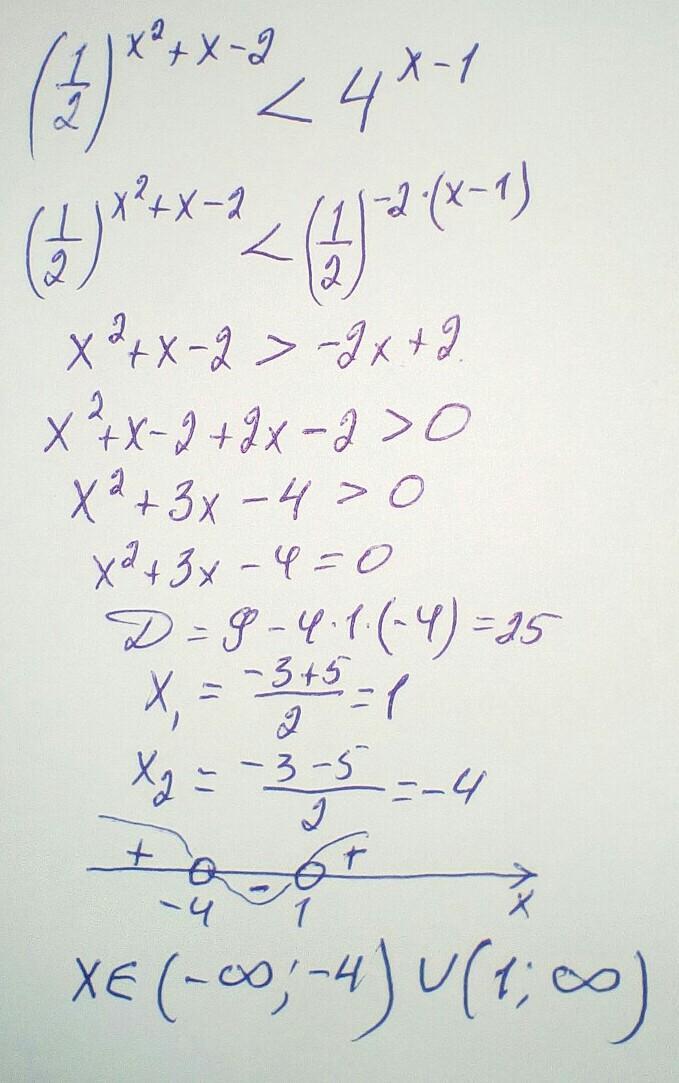 (1/2)^(x²+x-2) < 4^(x-1)
(1/2)^(x²+x-2) < (1/2)^(-2·(x-1))
x²+x-2 > -2x+2
x²+x-2+2x-2 > 0
x²+3x-4 > 0
x²+3x-4=0
D=9-4·1·(-4)=25
x₁ = (-3+5)/2 = 1
x₂ = (-3-5)/2 = -4
+ - +
-4 1 x
x∈(-∞;-4)∪(1;∞)